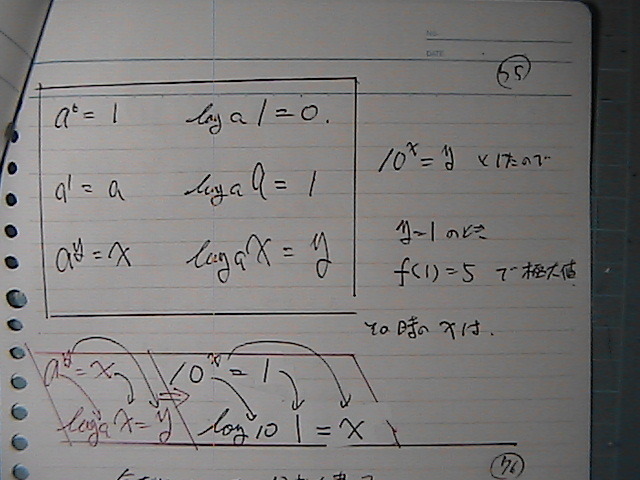 NO.
DATE
75
a⁰ = 1 log a 1 = 0.
a¹ = a log a a = 1
a^y = x log a x = y
10^x = y としたので
y=1 のとき
f(1) = 5 で極大値
その時の x は.
a^y = x ⇒ 10^x = 1
log a x = y log 10 1 = x
76